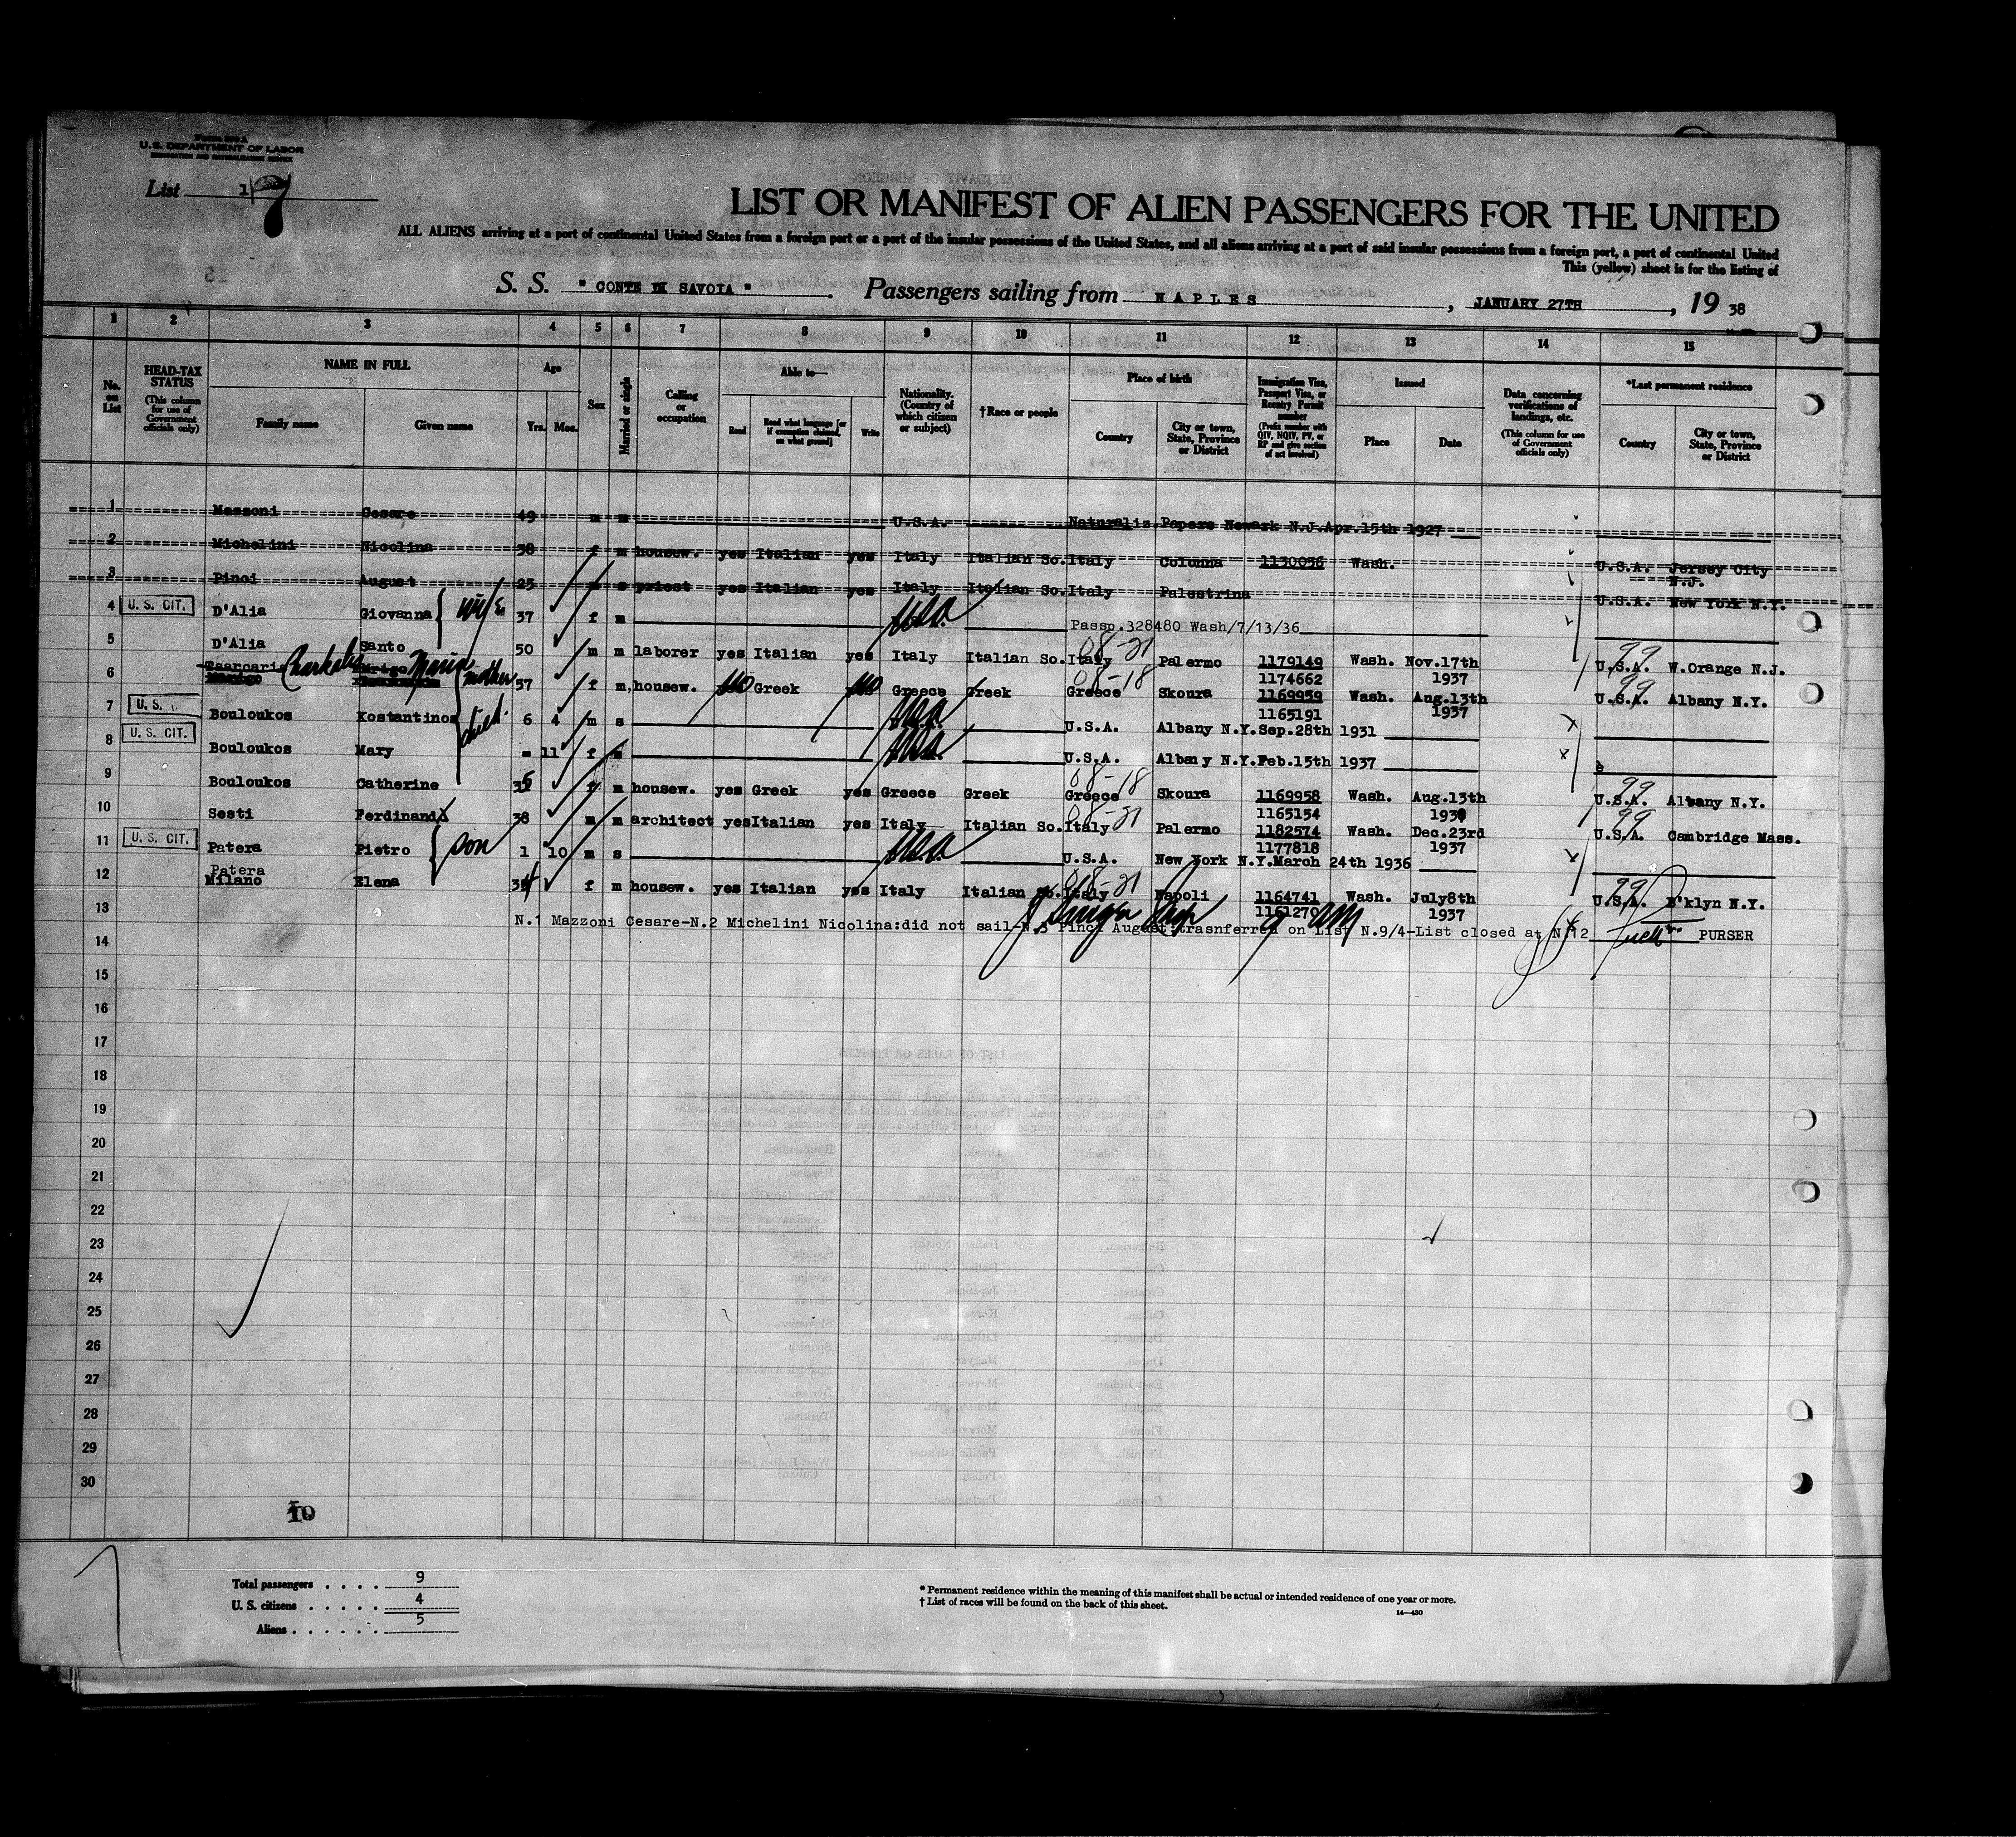 Form 500 A
U.S. DEPARTMENT OF LABOR
IMMIGRATION AND NATURALIZATION SERVICE
List 1 7
LIST OR MANIFEST OF ALIEN PASSENGERS FOR THE UNITED
ALL ALIENS arriving at a port of continental United States from a foreign port or a port of the insular possessions of the United States, and all aliens arriving at a port of said insular possessions from a foreign port, a port of continental United
This (yellow) sheet is for the listing of
S. S. " CONTE DI SAVOIA " Passengers sailing from N A P L E S , JANUARY 27TH , 19 38
1 2 3 4 5 6 7 8 9 10 11 12 13 14 15
No. on List
HEAD-TAX STATUS (This column for use of Government officials only)
NAME IN FULL Family name Given name
Age Yrs. Mos.
Sex
Married or single
Calling or occupation
Able to— Read Read what language [or if exemption claimed, on what ground] Write
Nationality. (Country of which citizen or subject)
†Race or people
Place of birth Country City or town, State, Province or District
Immigration Visa, Passport Visa, or Reentry Permit number (Prefix number with QIV, NQIV, PV, or RP and give section of act involved)
Issued Place Date
Data concerning verifications of landings, etc. (This column for use of Government officials only)
*Last permanent residence Country City or town, State, Province or District
1 Mazzoni Cesare 49 m m U.S.A. Naturaliz. Papers Newark N.J.Apr.15th 1927
2 Michelini Nicolina 38 f m housew. yes Italian yes Italy Italian So. Italy Colonna 1130056 Wash. U.S.A. Jersey City N.J.
3 Pinci August 25 m s priest yes Italian yes Italy Italian So. Italy Palestrina U.S.A. New York N.Y.
4 U. S. CIT. D'Alia Giovanna wife 37 f m USA Passp.328480 Wash/7/13/36
5 D'Alia Santo 50 m m laborer yes Italian yes Italy Italian So. Italy 08-21 Palermo 1179149 1174662 Wash. Nov.17th 1937 99 U.S.A. W.Orange N.J.
6 Maria mother 57 f m,housew. no Greek no Greece Greek Greece 08-18 Skoura 1169959 1165191 Wash. Aug.13th 1937 99 U.S.A. Albany N.Y.
7 U. S. Bouloukos Kostantinos child 6 4 m s USA U.S.A. Albany N.Y.Sep.28th 1931
8 U. S. CIT. Bouloukos Mary - 11 f s USA U.S.A. Albany N.Y.Feb.15th 1937
9 Bouloukos Catherine f m housew. yes Greek yes Greece Greek Greece 08-18 Skoura 1169958 1165154 Wash. Aug.13th 99 U.S.A. Albany N.Y.
10 Sesti Ferdinand 38 m m architect yes Italian yes Italy Italian So. Italy 08-21 Palermo 1182574 1177818 Wash. Dec.23rd 1937 99 U.S.A. Cambridge Mass.
11 U. S. CIT. Patera Pietro son 1 10 m s USA U.S.A. New York N.Y.March 24th 1936
12 Patera Milano Elena f m housew. yes Italian yes Italy Italian So. Italy 08-21 Napoli 1164741 1161270 Wash. July8th 1937 99 U.S.A. B'klyn N.Y.
13 N.1 Mazzoni Cesare-N.2 Michelini Nicolina:did not sail-N.3 Pinci August:trasnferred on List N.9/4-List closed at N.12 PURSER
14
15
16
17
18
19
20
21
22
23
24
25
26
27
28
29
30
10
Total passengers . . . . 9
U. S. citizens . . . . . 4
Aliens . . . . . . 5
* Permanent residence within the meaning of this manifest shall be actual or intended residence of one year or more.
† List of races will be found on the back of this sheet.
14—430